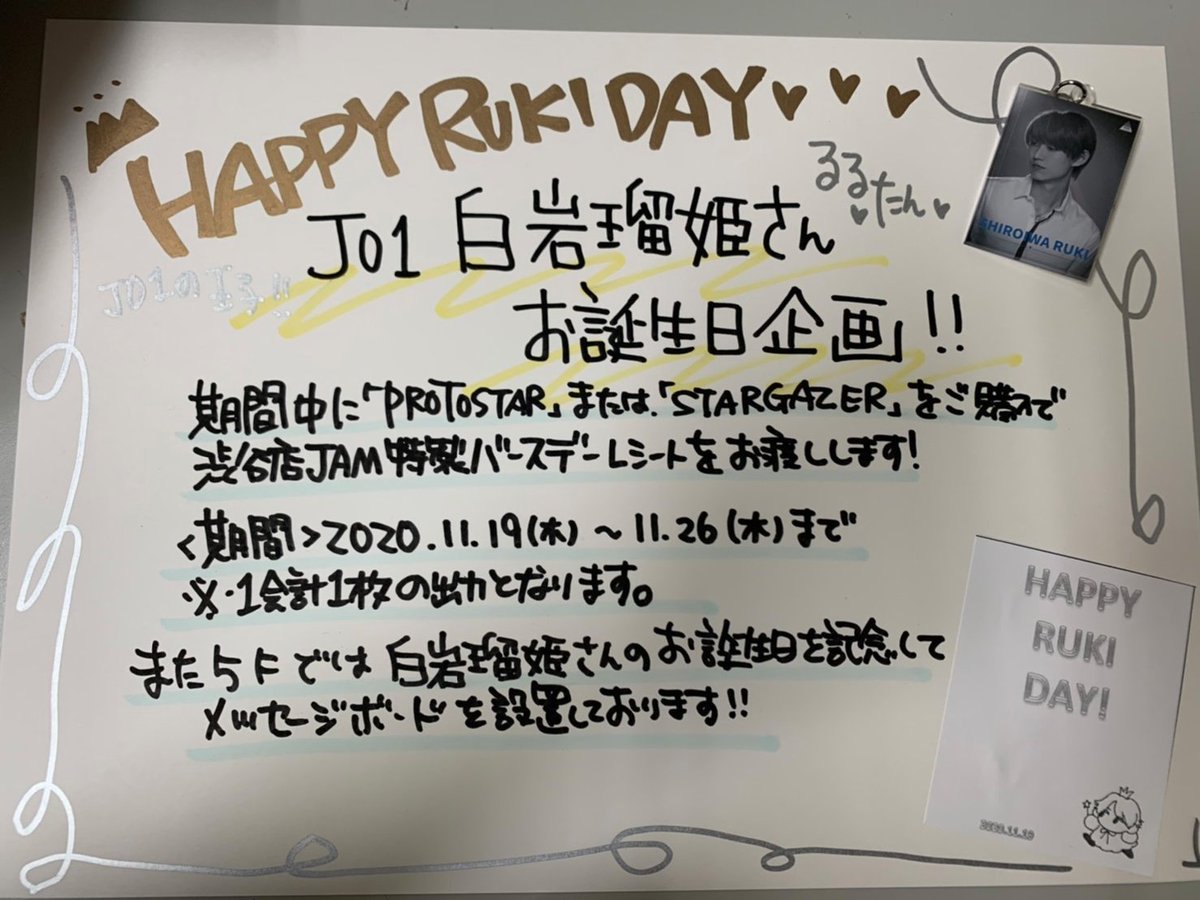 HAPPY RUKI DAY
るるたん
JO1 白岩瑠姫さん
JO1の王子!!
お誕生日企画!!
期間中に「PROTOSTAR」または「STARGAZER」をご購入で
渋谷店JAM特製バースデーレシートをお渡しします!
<期間>2020.11.19(木)~11.26(木)まで
※1会計1枚の出力となります。
また5Fでは白岩瑠姫さんのお誕生日を記念して
メッセージボードを設置しております!!
SHIROIWA RUKI
HAPPY
RUKI
DAY!
2020.11.19